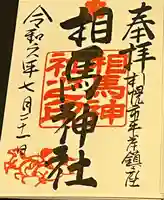 奉拝
札幌市平岸鎮座
相馬神社
相馬神
社
令和六年七月二十一日